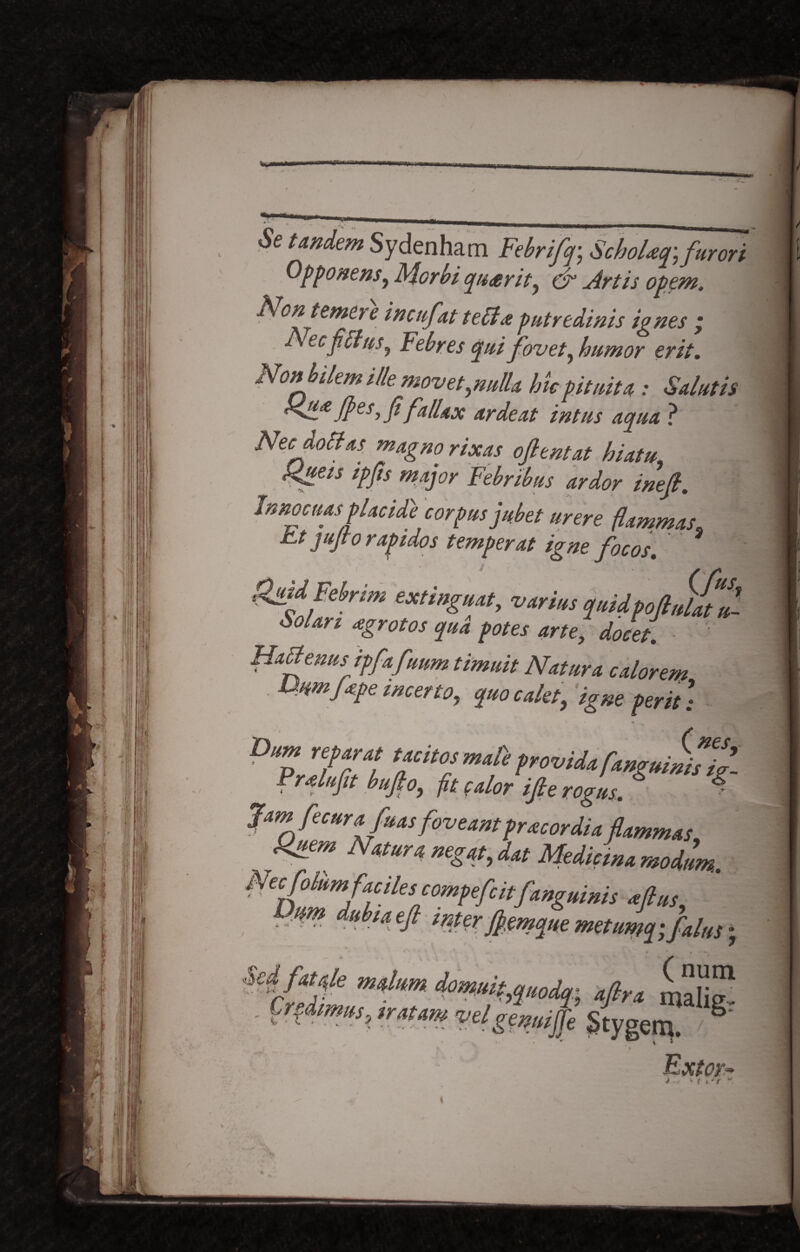 Se tandem Sydenham Febriſq; Scholæq; furori
Opponens, Morbi quærit, & Artis opem.
Non temerè incuſat tectæ putredinis ignes ;
Nec fictus, Febres qui fovet, humor erit.
Non bilem ille movet, nulla hìc pituita : Salutis
Quæ ſpes, ſi fallax ardeat intus aqua ?
Nec doctas magno rixas oſtentat hiatu,
Queis ipſis major Febribus ardor ineſt.
Innocuas placidè corpus jubet urere flammas,
Et juſto rapidos temperat igne focos.
(ſus,
Quid Febrim extinguat, varius quid poſtulat u-
Solari ægrotos quâ potes arte, docet.
Hactenus ipſa ſuum timuit Natura calorem,
Dum ſæpe incerto, quo calet, igne perit :
(nes,
Dum reparat tacitos malè provida ſanguinis ig-
Præluſit buſto, fit calor iſte rogus.
Jam ſecura ſuas foveant præcordia flammas,
Quem Natura negat, dat Medicina modum.
Nec ſolùm faciles compeſcit ſanguinis æſtus,
Dum dubia eſt inter ſpemque metumq; ſalus ;
(num
Sed fatale malum domuit, quodq; aſtra malig-
Credimus, iratam vel genuiſſe Stygem.
Extor-